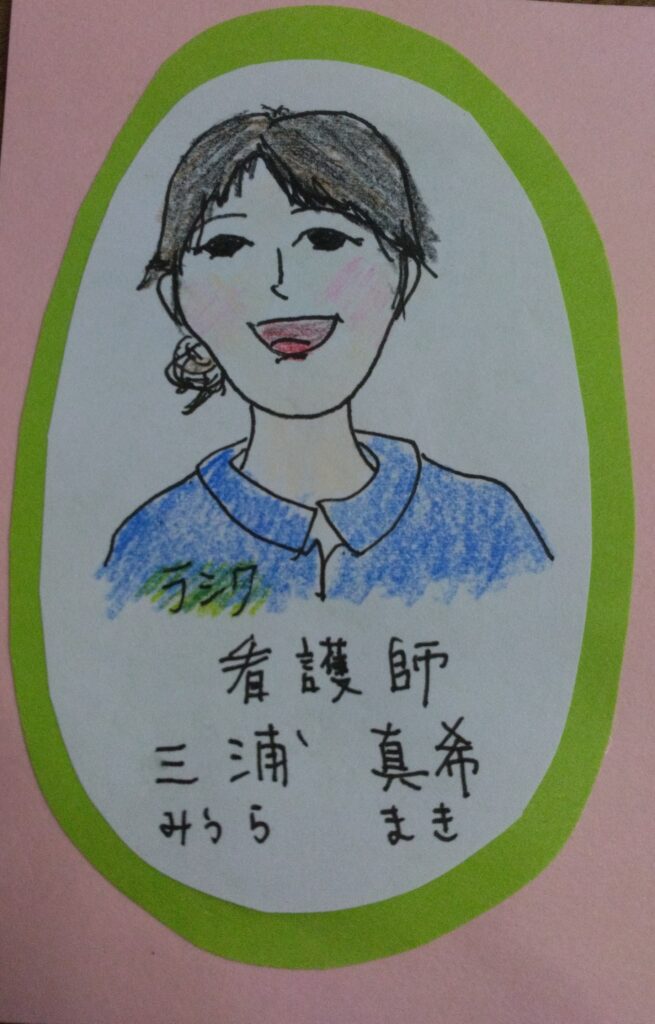 ラシク
看護師
三浦 真希
みうら まき